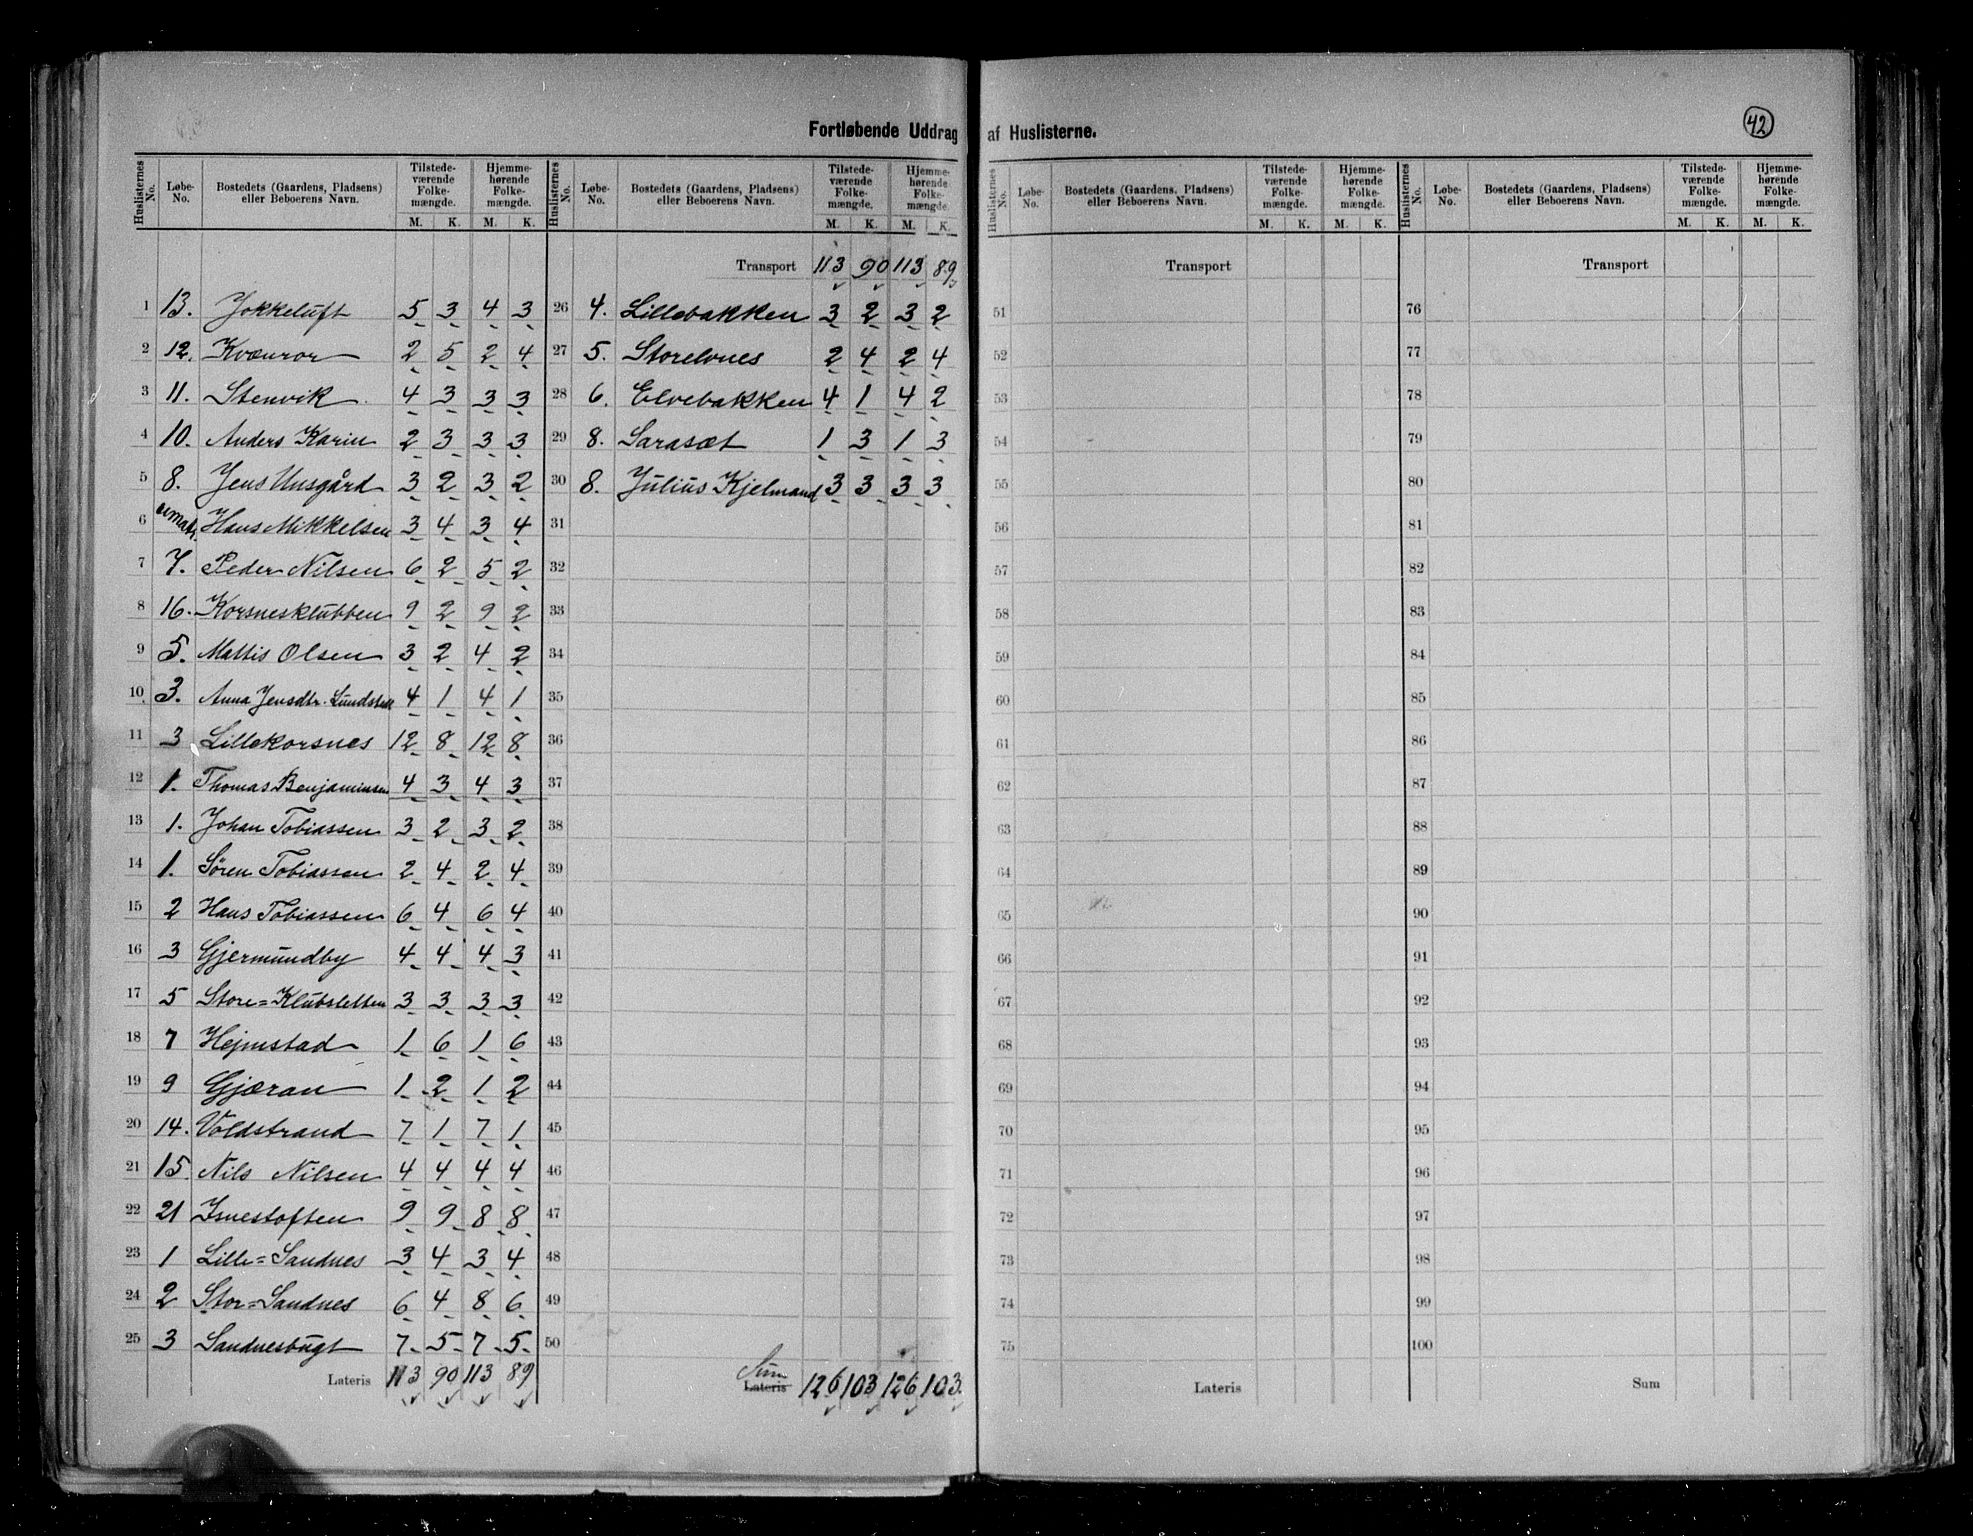 Fortløbende Uddrag af Huslisterne.
42
Huslisternes No. Løbe-No. Bostedets (Gaardens, Pladsens) eller Beboerens Navn. Tilstedeværende Folkemængde. M. K. Hjemmehørende Folkemængde. M. K.
1 13. Jokkeluft 5 3 4 3
2 12. Kvænror 2 5 2 4
3 11. Stenvik 4 3 3 3
4 10. Anders Karin 2 3 3 3
5 8. Jens Unsgård 3 2 3 2
6 umatr. Hans Mikkelsen 3 4 3 4
7 7. Peder Nilsen 6 2 5 2
8 16. Korsnesklubben 9 2 9 2
9 5. Mattis Olsen 3 2 4 2
10 3. Anna Jensdtr. 4 1 4 1
11 3 Lillekorsnes 12 8 12 8
12 1. Thomas Benjaminsen 4 3 4 3
13 1. Johan Tobiassen 3 2 3 2
14 1. Søren Tobiassen 2 4 2 4
15 2 Hans Tobiassen 6 4 6 4
16 3 Gjermundby 4 4 4 3
17 5 Store=Klubsletten 3 3 3 3
18 7 Hejmstad 1 6 1 6
19 9 Gjæran 1 2 1 2
20 14. Voldstrand 7 1 7 1
21 15. Nils Nilsen 4 4 4 4
22 21 Isnestoften 9 9 8 8
23 1 Lille=Sandnes 3 4 3 4
24 2 Stor=Sandnes 6 4 8 6
25 3 Sandnesbugt 7 5 7 5
Lateris 113 90 113 89
Huslisternes No. Løbe-No. Bostedets (Gaardens, Pladsens) eller Beboerens Navn. Tilstedeværende Folkemængde. M. K. Hjemmehørende Folkemængde. M. K.
Transport 113 90 113 89
26 4. Lillebakken 3 2 3 2
27 5. Storelvnes 2 4 2 4
28 6. Elvebakken 4 1 4 2
29 8. Sarasæt 1 3 1 3
30 8. Julius Kjelmand 3 3 3 3
31
32
33
34
35
36
37
38
39
40
41
42
43
44
45
46
47
48
49
50
Sum
Lateris 126 103 126 103
Huslisternes No. Løbe-No. Bostedets (Gaardens, Pladsens) eller Beboerens Navn. Tilstedeværende Folkemængde. M. K. Hjemmehørende Folkemængde. M. K.
Transport
51
52
53
54
55
56
57
58
59
60
61
62
63
64
65
66
67
68
69
70
71
72
73
74
75
Lateris
Huslisternes No. Løbe-No. Bostedets (Gaardens, Pladsens) eller Beboerens Navn. Tilstedeværende Folkemængde. M. K. Hjemmehørende Folkemængde. M. K.
Transport
76
77
78
79
80
81
82
83
84
85
86
87
88
89
90
91
92
93
94
95
96
97
98
99
100
Sum